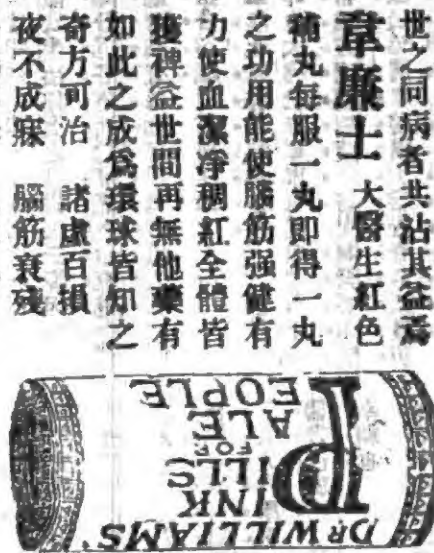 世之同病者共沾其益焉
韋廉士 大醫生紅色
補丸每服一丸即得一丸
之功用能使腦筋强健有
力使血潔净稠紅全體皆
獲裨益世間再無他藥有
如此之成爲環球皆知之
奇方可治 諸虛百損
夜不成寐 腦筋衰殘
DR WILLIAMS'
PINK
PILLS
FOR
PALE
PEOPLE